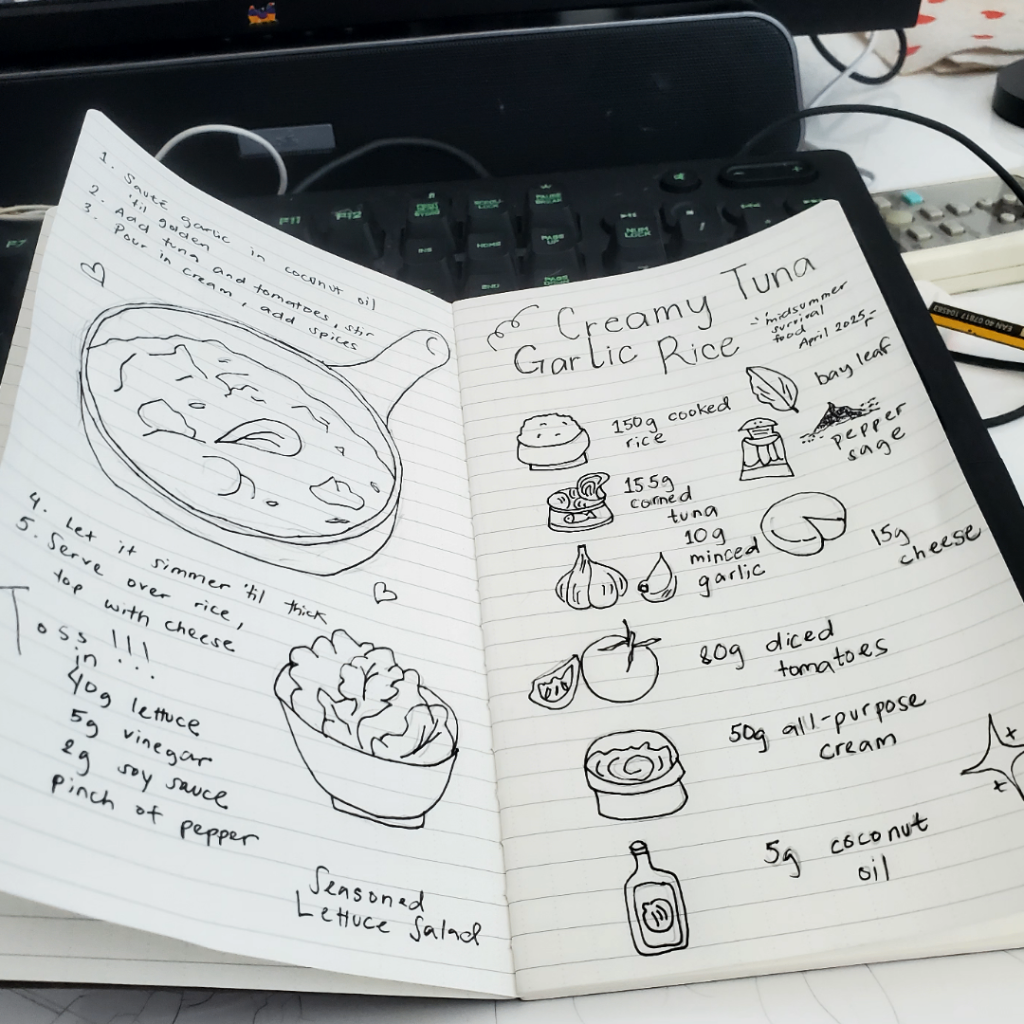 1. Sauté garlic in coconut oil
'til golden
2. Add tuna and tomatoes, stir
3. Pour in cream, add spices
4. Let it simmer 'til thick
5. Serve over rice,
top with cheese
Toss !!!
in
40g lettuce
5g vinegar
2g soy sauce
pinch of pepper
Seasoned
Lettuce Salad
Creamy Tuna
Garlic Rice
midsummer
survival
food
April 2025
bay leaf
pepper
sage
150g cooked
rice
155g
corned
tuna
10g
minced
garlic
15g
cheese
80g diced
tomatoes
50g all-purpose
cream
5g coconut
oil
F7
F11
F12
SCROLL
LOCK
PAUSE
BREAK
INS
HOME
PAGE
UP
NUM
LOCK
END
EAN 40 07817 104583